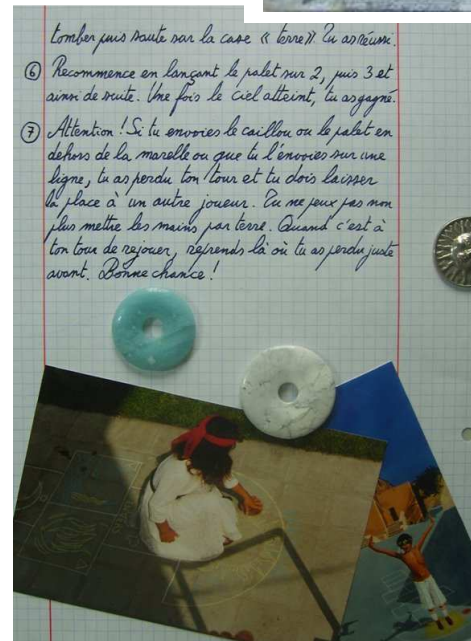 tomber puis saute sur la case « terre ». Tu as réussi.
⑥ Recommence en lançant le palet sur 2, puis 3 et
ainsi de suite. Une fois le ciel atteint, tu as gagné.
⑦ Attention ! Si tu envoies le caillou ou le palet en
dehors de la marelle ou que tu l'envoies sur une
ligne, tu as perdu ton tour et tu dois laisser
la place à un autre joueur. Tu ne peux pas non
plus mettre les mains par terre. Quand c'est à
ton tour de rejouer, reprends là où tu as perdu juste
avant. Bonne chance !